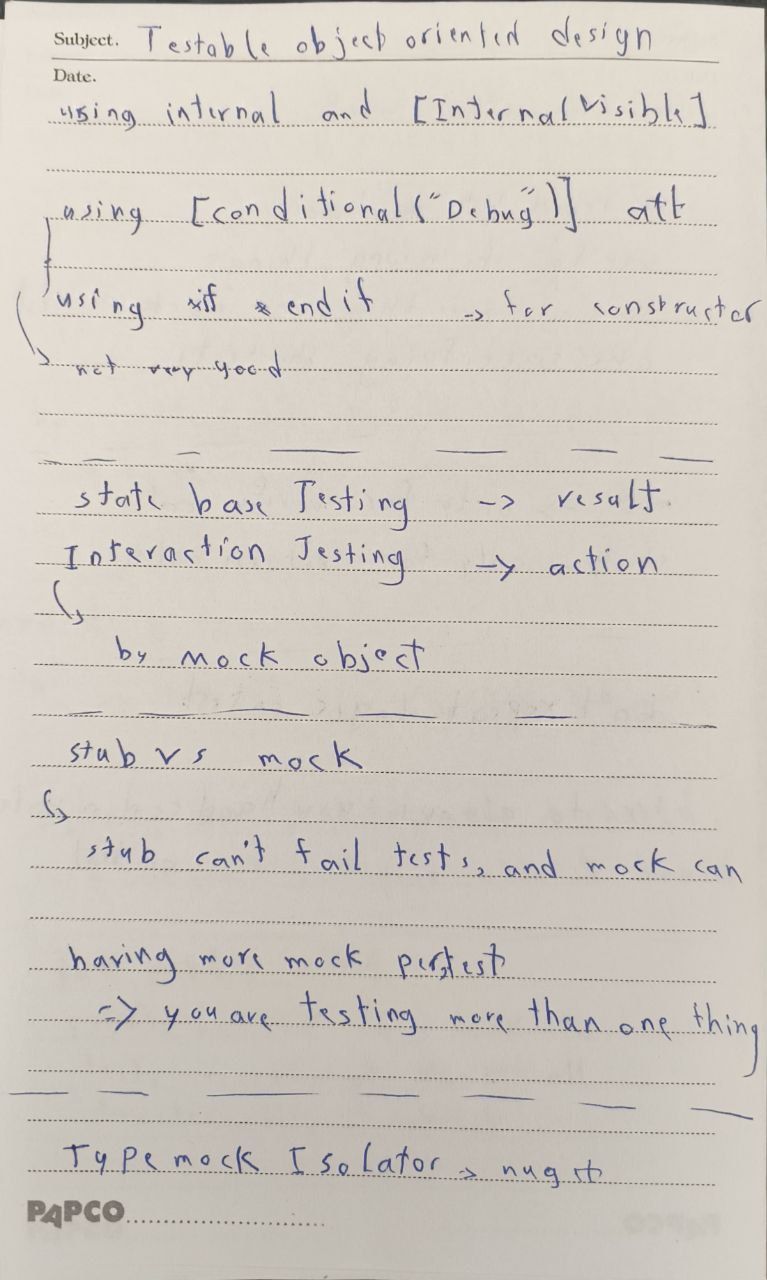 Subject. Testable object oriented design
Date.
using internal and [Internal Visible]
using [conditional("Debug")] att
using #if # endif -> for constructer
not very good
state base Testing -> result.
Interaction Testing -> action
by mock object
stub vs mock
stub can't fail tests, and mock can
having more mock per test
=> you are testing more than one thing
Type mock Isolator -> nuget
PAPCO